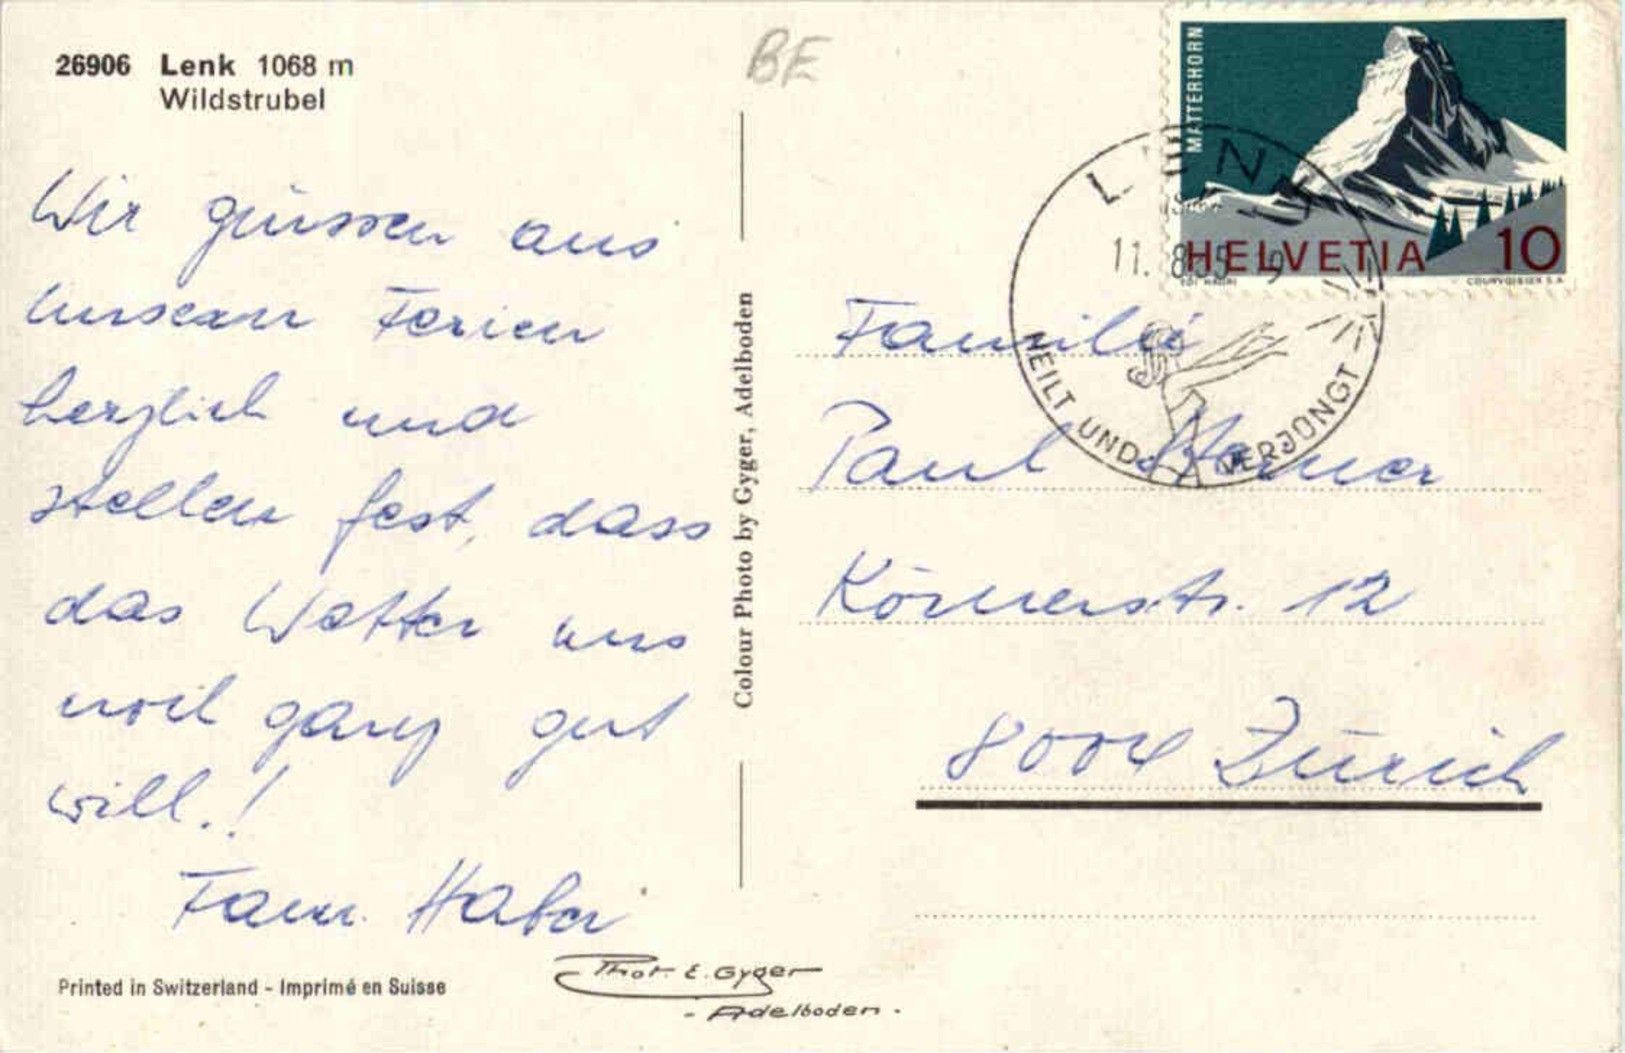 26906 Lenk 1068 m
Wildstrubel
BE
Wir grüssen aus
unseren Ferien
herzlich und
stellen fest, dass
das Wetter uns
noch ganz gut
will.!
Fam. Haber
Printed in Switzerland - Imprimé en Suisse
Phot. E. Gyger
- Adelboden.
Colour Photo by Gyger, Adelboden
MATTERHORN
HELVETIA 10
COURVOISIER S.A.
LENK
11. 8. 9
HEILT UND VERJÜNGT
Familie
Paul
Körnerstr. 12
8004 Zürich